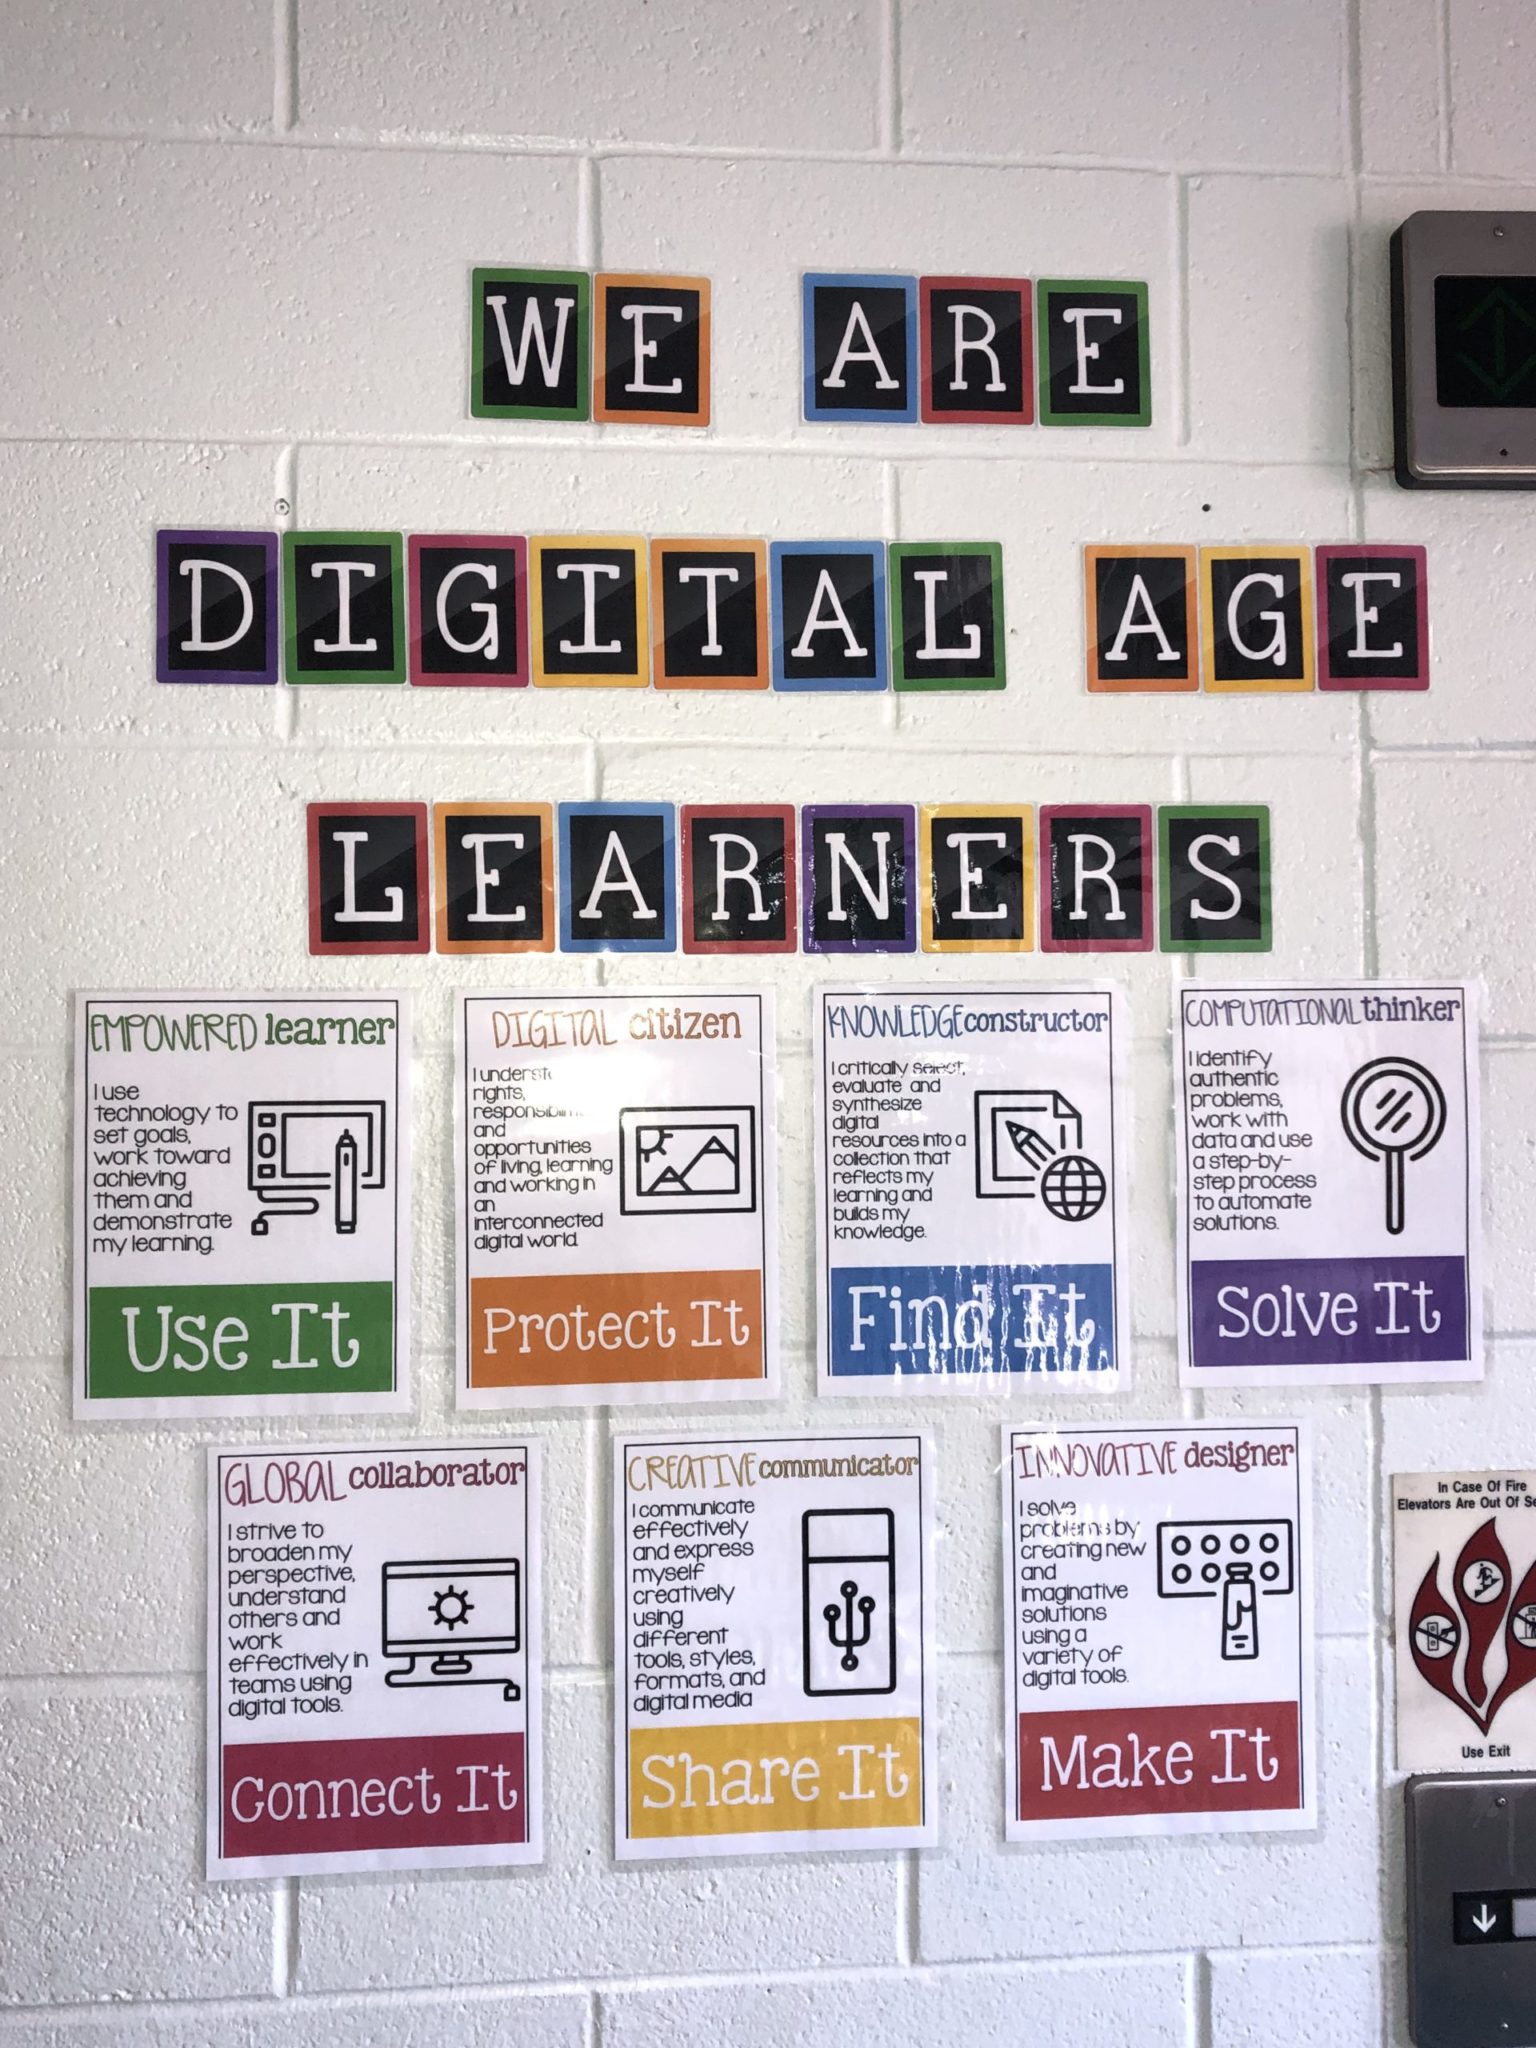 WE ARE
DIGITAL AGE
LEARNERS
EMPOWERED learner
I use
technology to
set goals,
work toward
achieving
them and
demonstrate
my learning.
Use It
DIGITAL citizen
I
rights,
and
opportunities
of living, learning
and working in
an
interconnected
digital world.
Protect It
KNOWLEDGE constructor
I critically select,
evaluate and
synthesize
digital
resources into a
collection that
reflects my
learning and
builds my
knowledge.
Find It
COMPUTATIONAL thinker
I identify
authentic
problems,
work with
data and use
a step-by-
step process
to automate
solutions.
Solve It
GLOBAL collaborator
I strive to
broaden my
perspective,
understand
others and
work
effectively in
teams using
digital tools.
Connect It
CREATIVE communicator
I communicate
effectively
and express
myself
creatively
using
different
tools, styles,
formats, and
digital media
Share It
INNOVATIVE designer
I solve
problems by
creating new
and
imaginative
solutions
using a
variety of
digital tools.
Make It
In Case Of Fire
Elevators Are Out Of
Use Exit